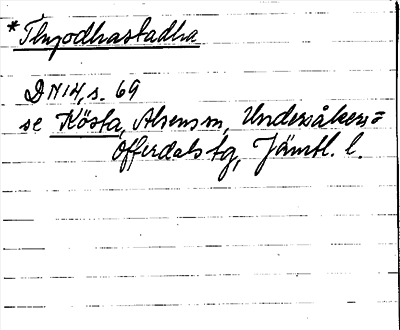 *Thyodhastadha
DN 14, s. 69
se Kösta, Alsens sn, Undersåkers=
Offerdals tg, Jämtl. l.